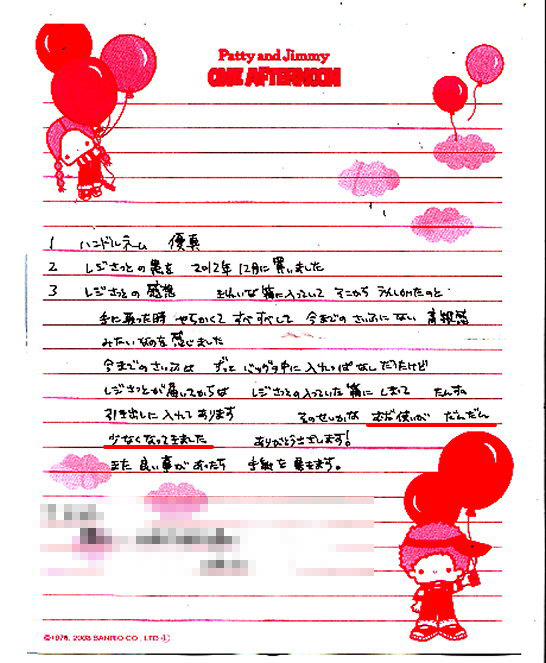 Patty and Jimmy
ONE AFTERNOON
1 ハンドルネーム 優真
2 レジさっとの黒を 2012年12月に買いました
3 レジさっとの感想 きれいな箱に入っていて そこから うれしかったのと
手に取った時 やわらかくて すべすべして 今までのさいふにない 高級感
みたいなのを感じました
今までのさいふは ずっと バッグの中に入れっぱなしだったけど
レジさっとが届いてからは レジさっとの入っていた箱にしまって たんすの
引き出しに入れてあります そのせいかな むだ使いが だんだん
少なくなってきました ありがとうございます!
また 良い事があったら 手紙を書きます。
©1976, 2008 SANRIO CO., LTD.